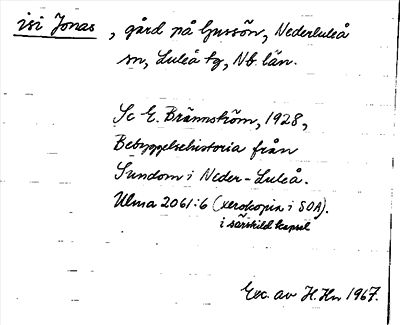 isi Jonas, gård på Ljussön, Nederluleå
sn, Luleå tg, Nb. län.
Se E. Brännström, 1928,
Bebyggelsehistoria från
Sundom i Neder-Luleå.
Ulma 2061:6 (xerokopia i SOA).
i särskild kapsel
Exc. av H. Hn 1967.